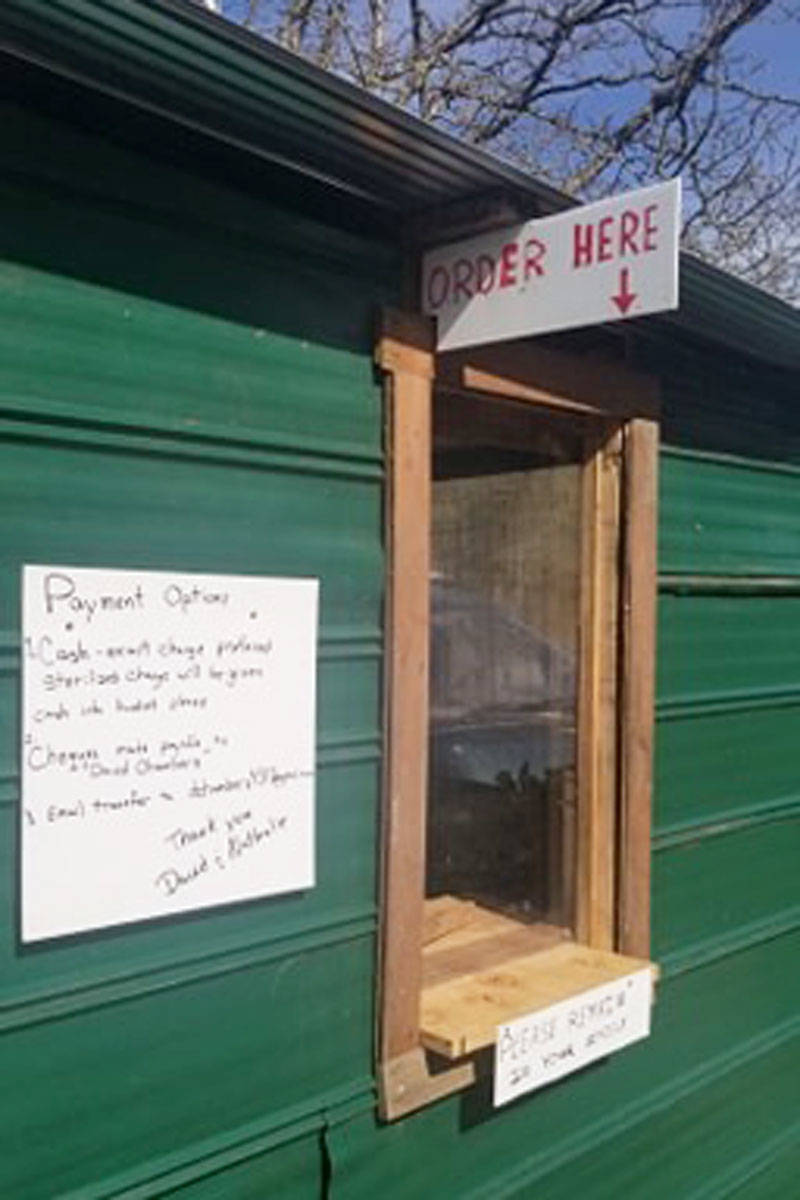 ORDER HERE
Payment Options
1. Cash - exact change preferred
sterilized change will be given
cash
2.
Cheques made payable to
"David Chambers"
3 Email transfer
Thank you
David & Nathalie
PLEASE REMAIN
IN YOUR